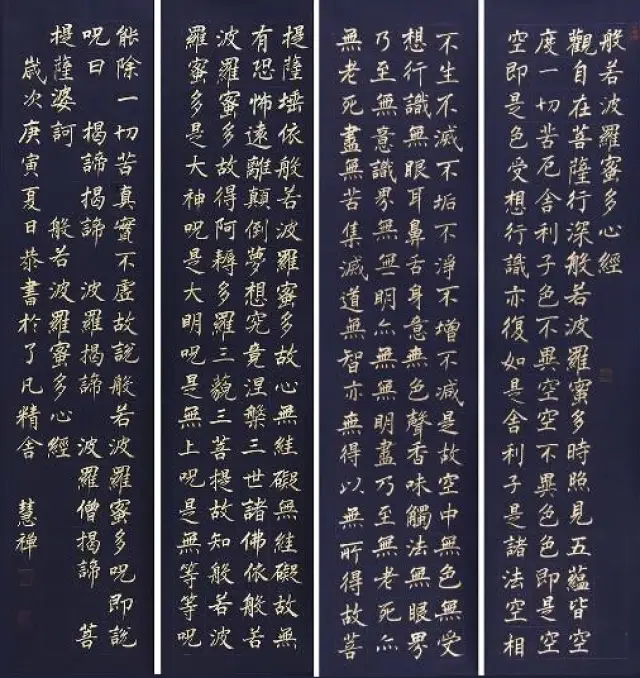 般若波羅蜜多心經
觀自在菩薩行深般若波羅蜜多時照見五蘊皆空
度一切苦厄舍利子色不異空空不異色色即是空
空即是色受想行識亦復如是舍利子是諸法空相
不生不滅不垢不淨不增不減是故空中無色無受
想行識無眼耳鼻舌身意無色聲香味觸法無眼界
乃至無意識界無無明亦無無明盡乃至無老死亦
無老死盡無苦集滅道無智亦無得以無所得故菩
提薩埵依般若波羅蜜多故心無絓礙無絓礙故無
有恐怖遠離顛倒夢想究竟涅槃三世諸佛依般若
波羅蜜多故得阿耨多羅三藐三菩提故知般若波
羅蜜多是大神呪是大明呪是無上呪是無等等呪
能除一切苦真實不虛故說般若波羅蜜多呪即說
呪曰 揭諦揭諦 波羅揭諦 波羅僧揭諦 菩
提薩婆訶 般若波羅蜜多心經
歲次庚寅夏日恭書於了凡精舍 慧禪